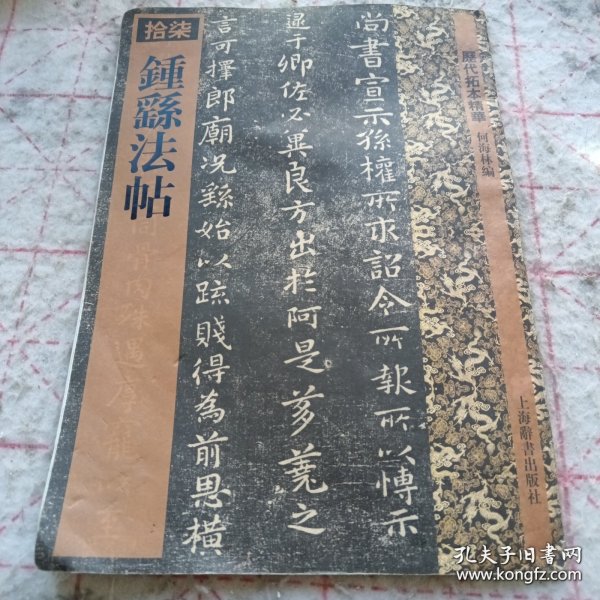 拾柒
鍾繇法帖
歷代拓本精華
何海林編
上海辭書出版社
尚書宣示孫權所求詔令所報所以博示
逮于卿佐必冀良方出於阿是芻蕘之
言可擇郎廟況繇始以疏賤得為前恩橫
孔夫子旧书网
www.kongfz.com